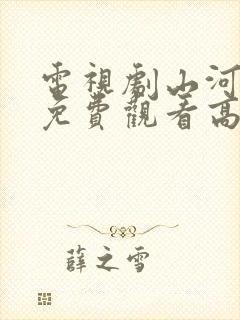 電視劇山河
免費觀看高
薛之雪